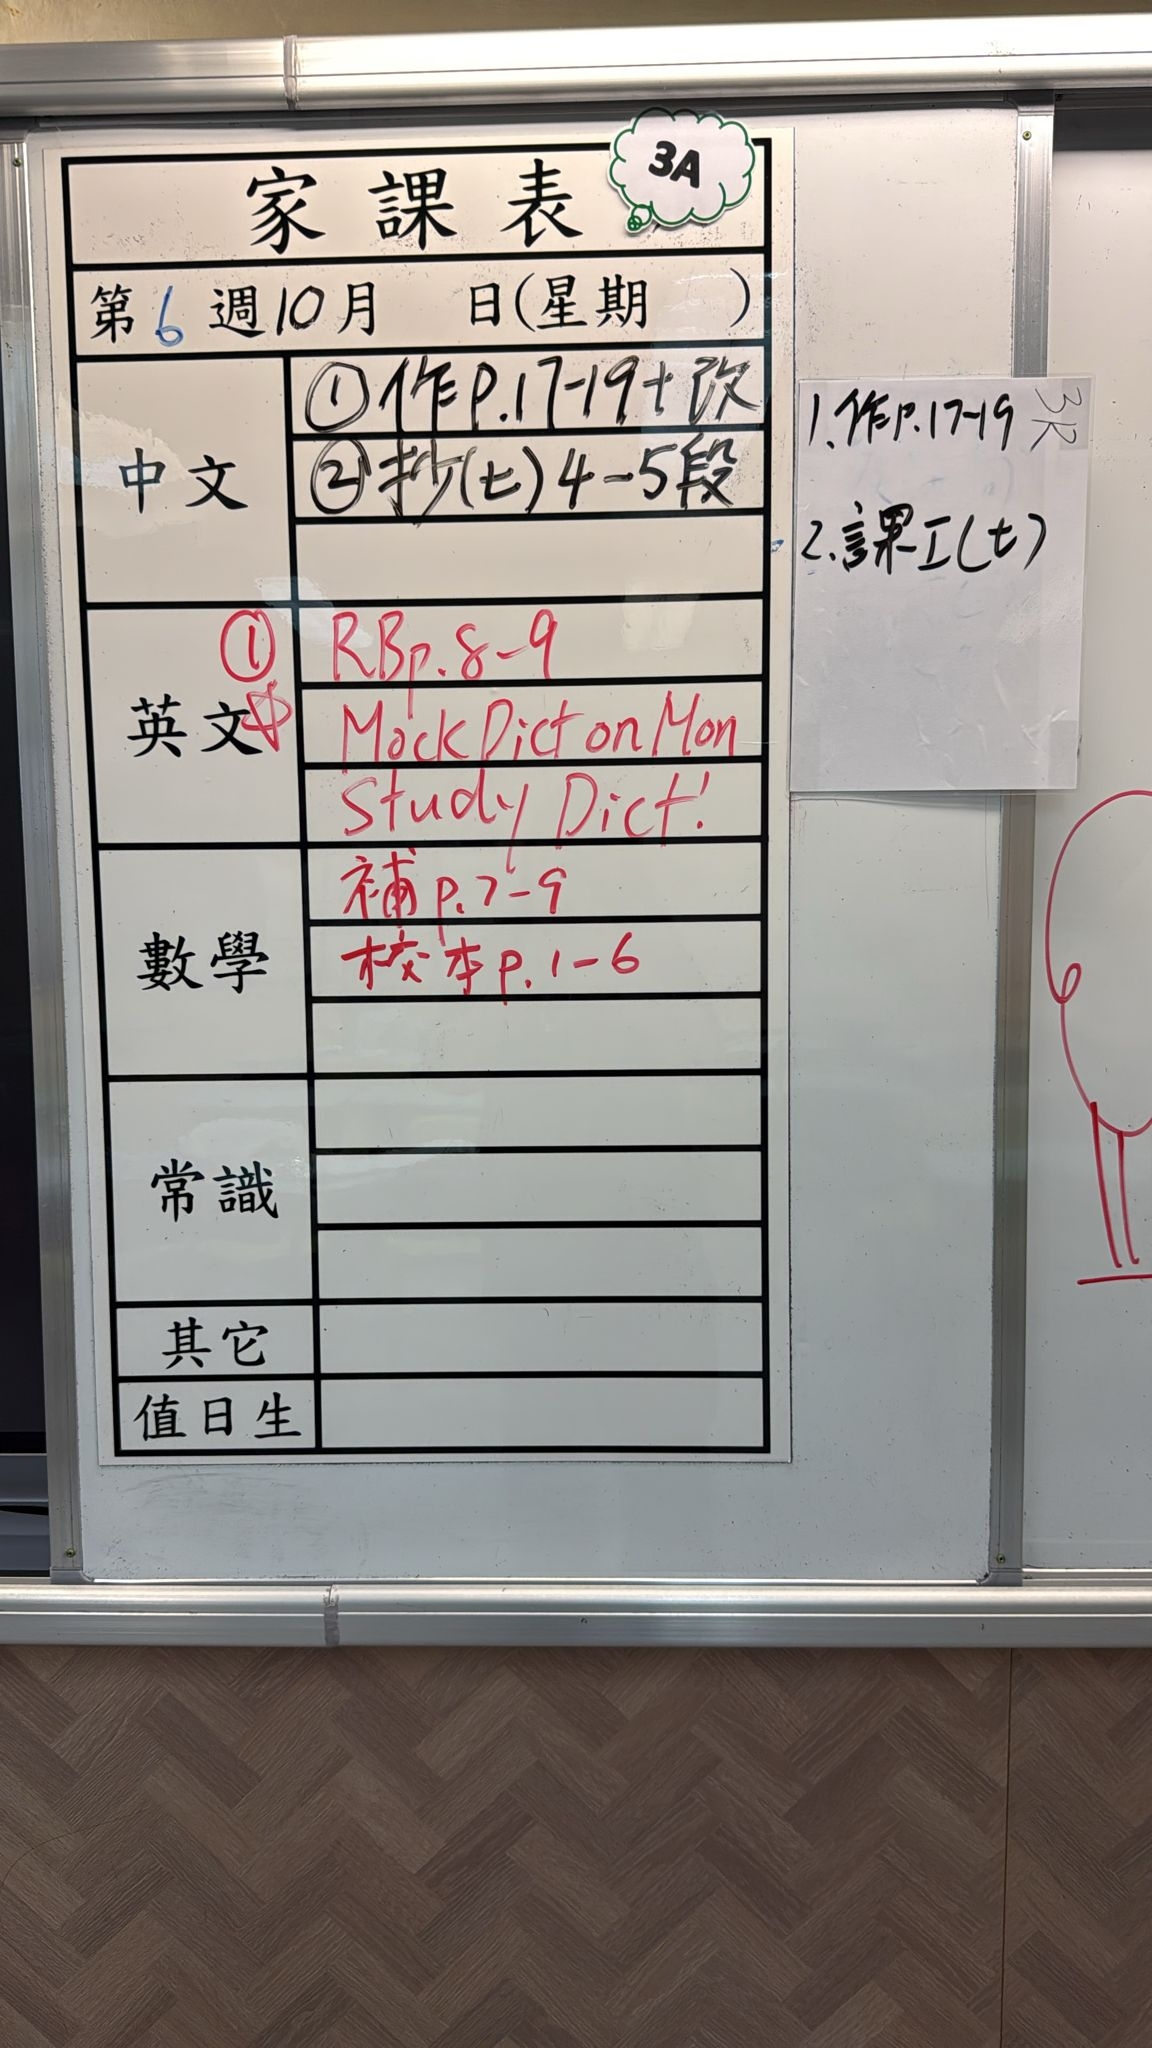 家課表
3A
第6週10月 日(星期 )
中文
①作p.17-19+改
②抄(七)4-5段
英文
① RBp.8-9
☆ Mock Dict on Mon
Study Dict!
數學
補p.7-9
校本p.1-6
常識
其它
值日生
3R
1.作p.17-19
2.課工(七)